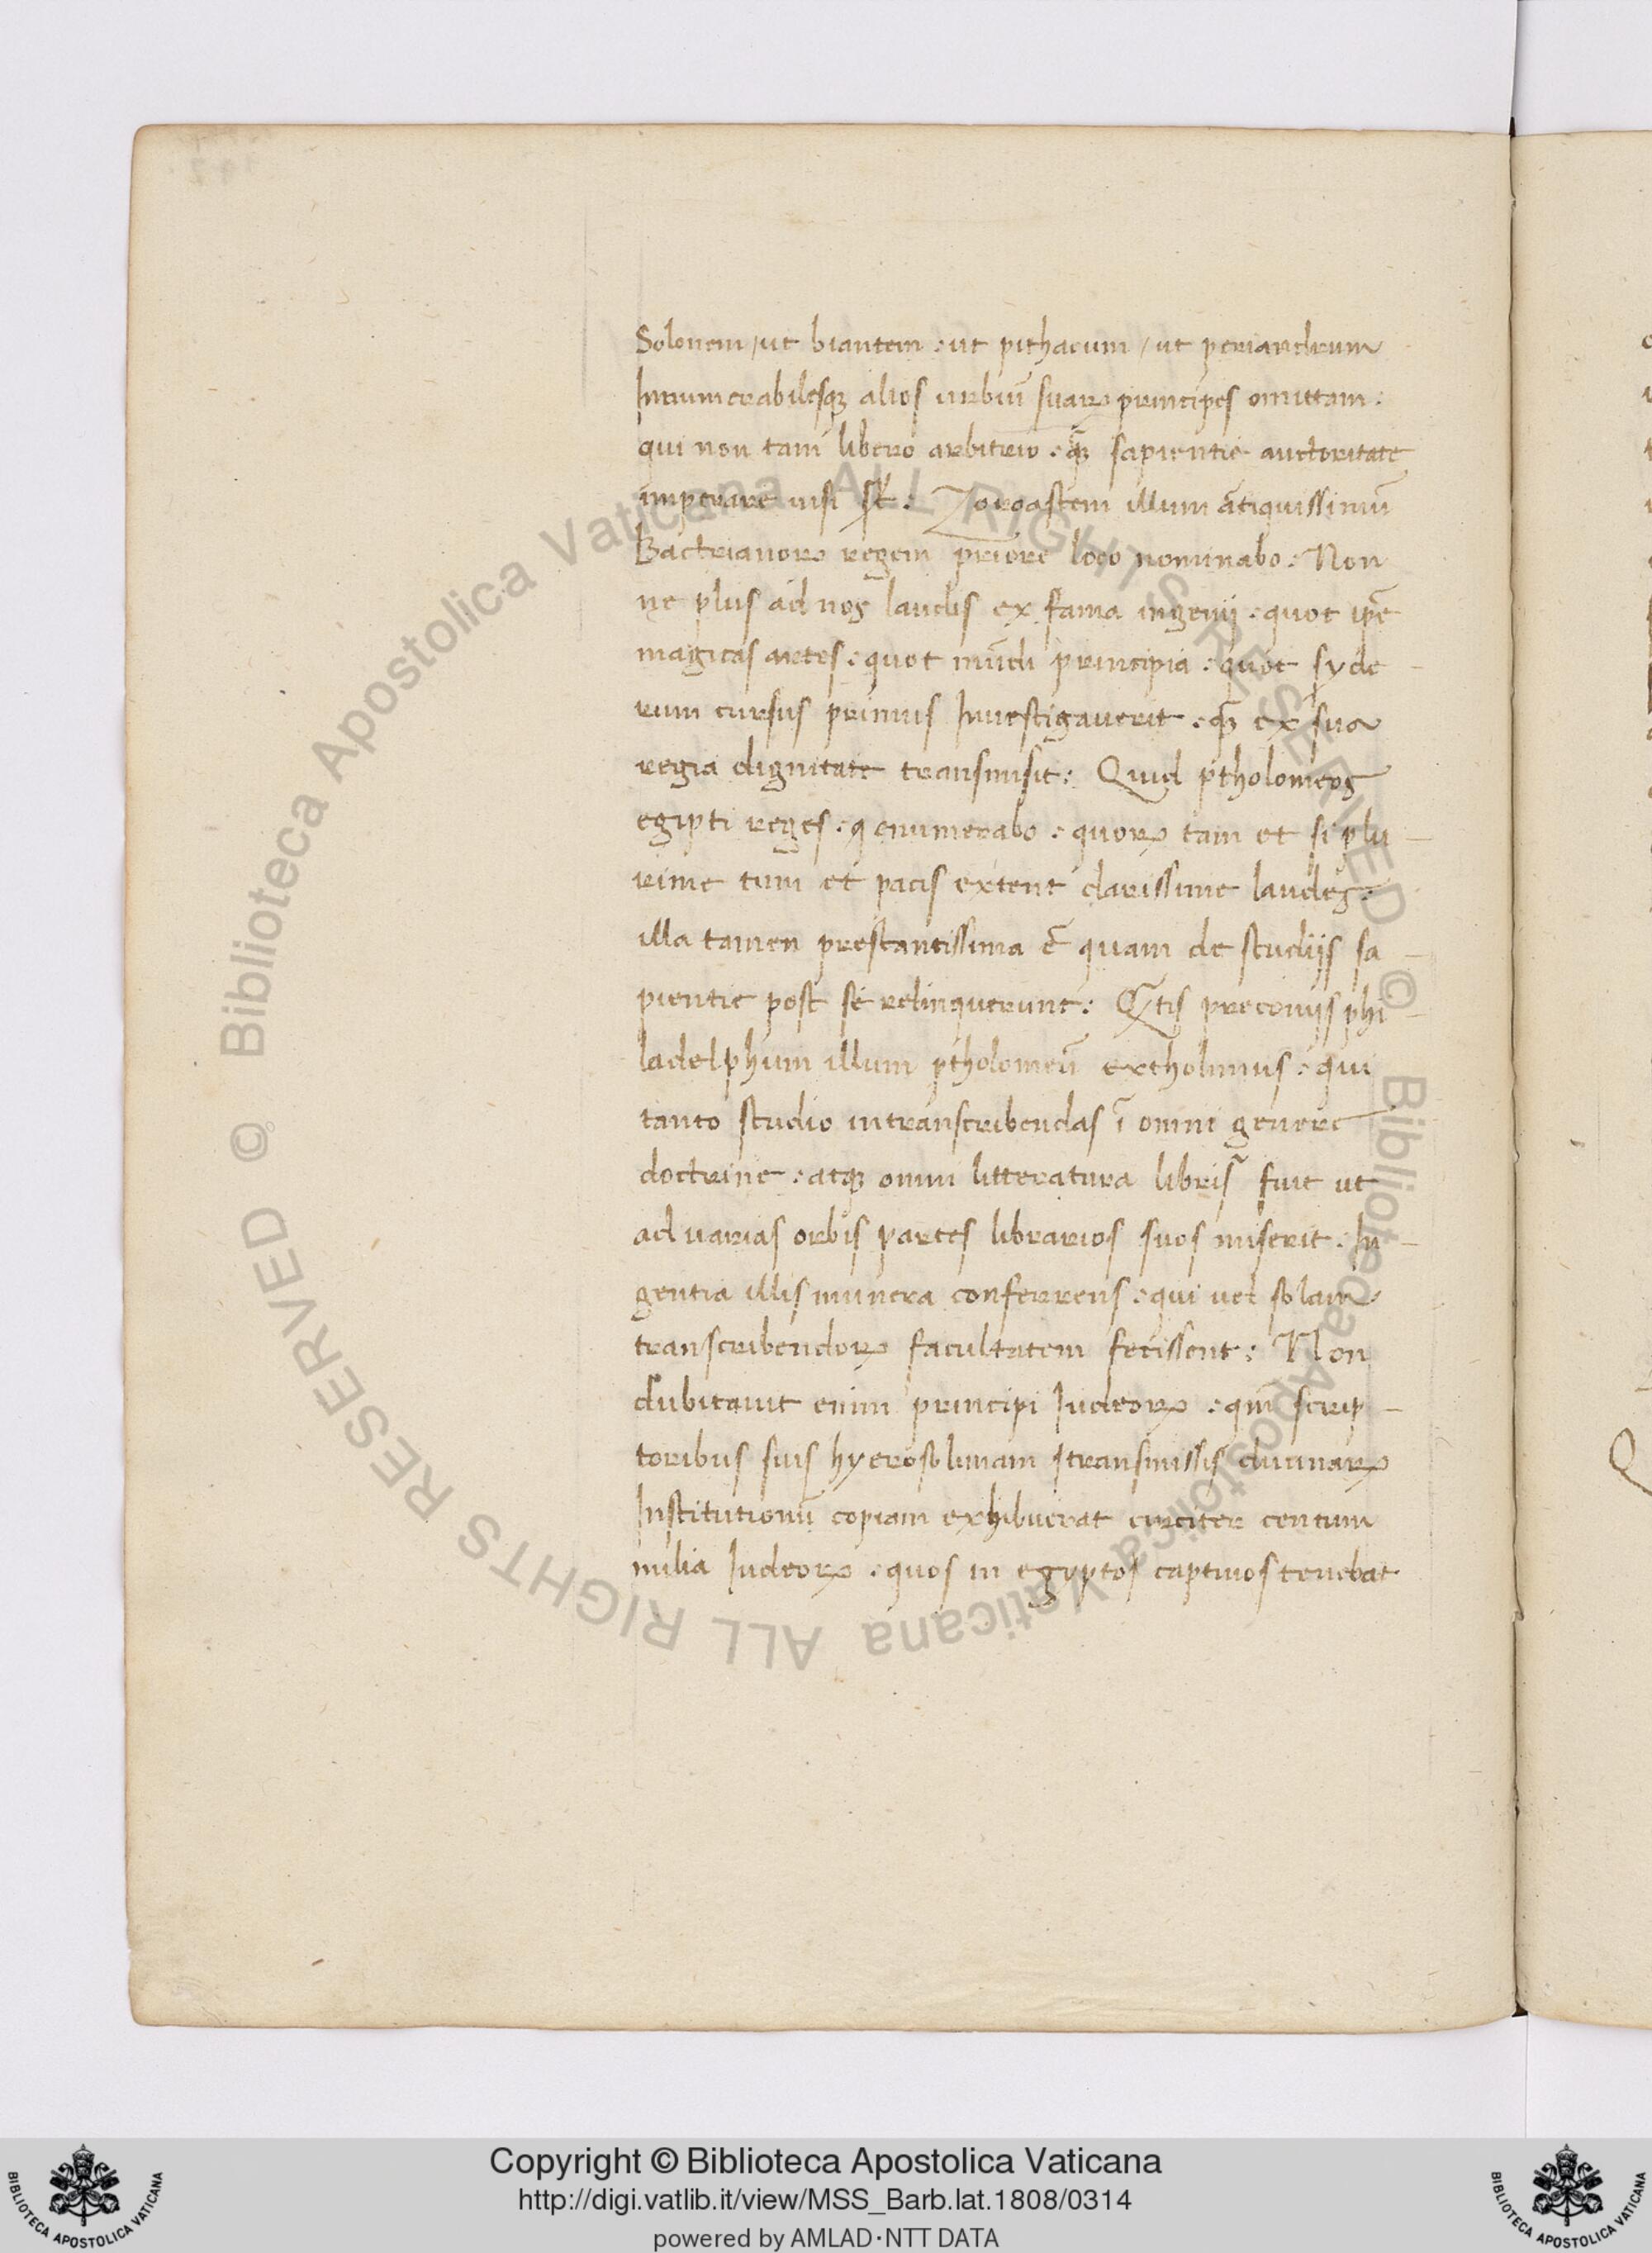 Solonem / ut biantem : ut pithacum / ut periandrum
Innumerabilesqꝫ alios urbiũ suarꝝ principes omittam :
qui non tam libero arbitrio : qꝫ̃ sapientie auctoritate
imperare uisi sũt : Zoroastem illum ãtiquissimũ
Bactrianorꝝ regem priore loco nominabo : Non
ne plus ad nos laudis ex fama ingenij : quot ip̃e
magicas artes : quot mũdi principia : quot syde
rum cursus primus Inuestigauerit : qꝫ̃ ex sua
regia dignitate transmisit : Quid ptholomeos
egipti reges : q enumerabo : quorꝝ tam et si plu
rime tum et pacis extent clarissime laudes :
illa tamen prestantissima ẽ quam de studijs sa
pientie post se relinquerunt : Q̃tis preconijs phi
ladelphum illum ptholomeũ extholimus : qui
tanto studio intranscribendas ĩ omni genere
doctrine : atqꝫ omni litteratura libris fuit ut
ad uarias orbis partes librarios suos miserit : In
gentia illis munera conferrens : qui uel solam
transcribendorꝝ facultatem fecissent : Non
dubitauit enim principi Iudeorꝝ : qui scrip
toribus suis hyerosolimam transmissis diuinarꝝ
Institutionũ copiam exhibuerat circiter centum
milia Iudeorꝝ : quos in egyptos captiuos tenebat
© Biblioteca Apostolica Vaticana ALL RIGHTS RESERVED © Biblioteca Apostolica Vaticana ALL RIGHTS RESERVED
Copyright © Biblioteca Apostolica Vaticana
http://digi.vatlib.it/view/MSS_Barb.lat.1808/0314
powered by AMLAD·NTT DATA
BIBLIOTECA APOSTOLICA VATICANA
BIBLIOTECA APOSTOLICA VATICANA